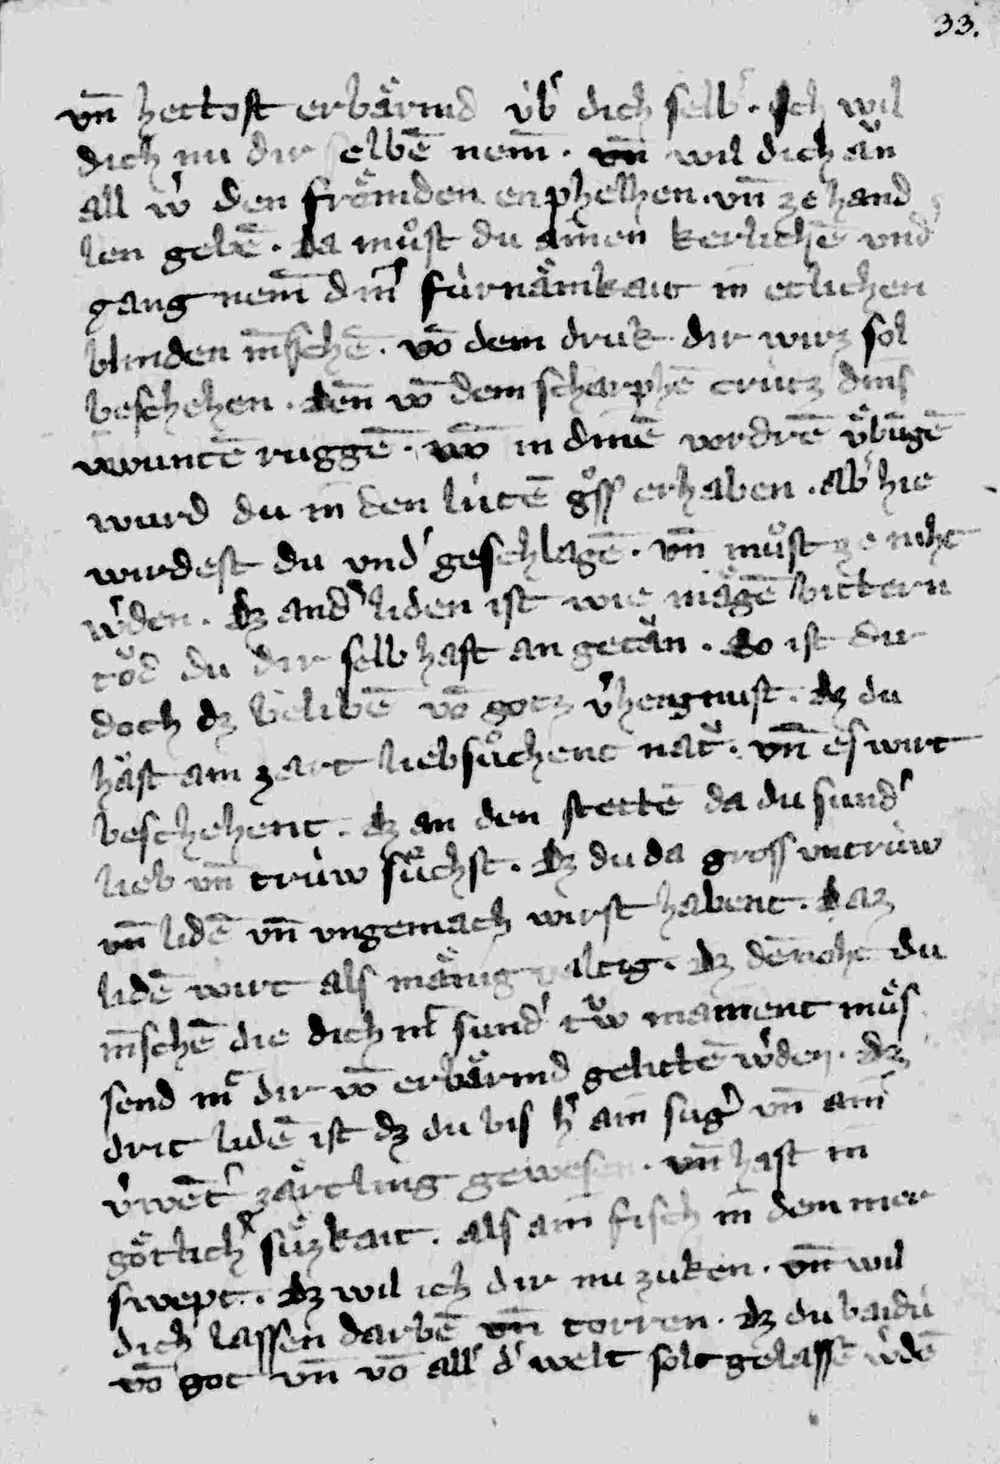 33.
vn̄ hettost erbärmd úb' dich selb'. Ich wil
dich nu dir selbē nem̄. vn̄ wil dich än
all w' den frömden enphelhen. vn̄ ze hand
len gebē. Da můst du ainen kerlichē vnd'
gang nem̄ din' fúrnämkait in etlichen
blinden mēschē. vō dem druk dir wirz sol
beschehen. den̄ vō dem scharphē crútz dins
v'wuntē ruggē. vō in dinē vordrē ů̈bungē
wurd du in den lútē gross erhaben. ab' hie
wirdest du vnd' geschlagē. vn̄ můst ze niht
w'den. Dz and' liden ist wie mägē bittern
tŏd du dir selb hast an getän. So ist dir
doch dz belibē vō gotz v'hengnust. dz du
häst ain zart liebsůchent nat'. vn̄ es wirt
beschehent. dz an den stettē da du sund'
lieb vn̄ trúw sůchst. Dz du da gross vntrúw
vn̄ lidē vn̄ vngemach wirst habent. Daz
lidē wirt als mänigualtig. Dz dēnoht du
mēschē die dich mit sund' trúw mainent mu̇s
send mit dir vō erbärmd gelittē w'den. dz
drit lidē ist dz du bis h' ain sug' vn̄ ain
v'wēt' zärtling gewesen. vn̄ hast in
götlich' süzkait. als ain fisch in dem mer
swept. dz wil ich dir nu zuken. vn̄ wil
dich lassen darbē vn̄ torren. dz du baidú
vō got vn̄ vō all' d' welt solt gelassē w'dē